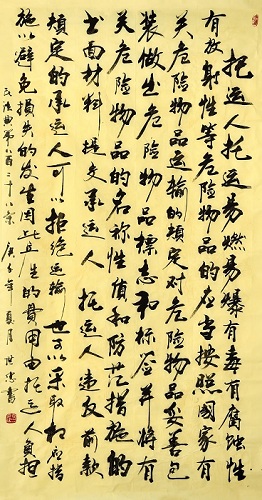 托运人托运易燃易爆有毒有腐蚀性
有放射性等危险物品的应当按照国家有
关危险物品运输的规定对危险物品妥善包
装做出危险物品标志和标签并将有
关危险物品的名称性质和防范措施的
书面材料提交承运人 托运人违反前款
规定的承运人可以拒绝运输也可以采取相应措
施以避免损失的发生因此产生的费用由托运人负担
民法典第八百二十八条 庚子年夏月